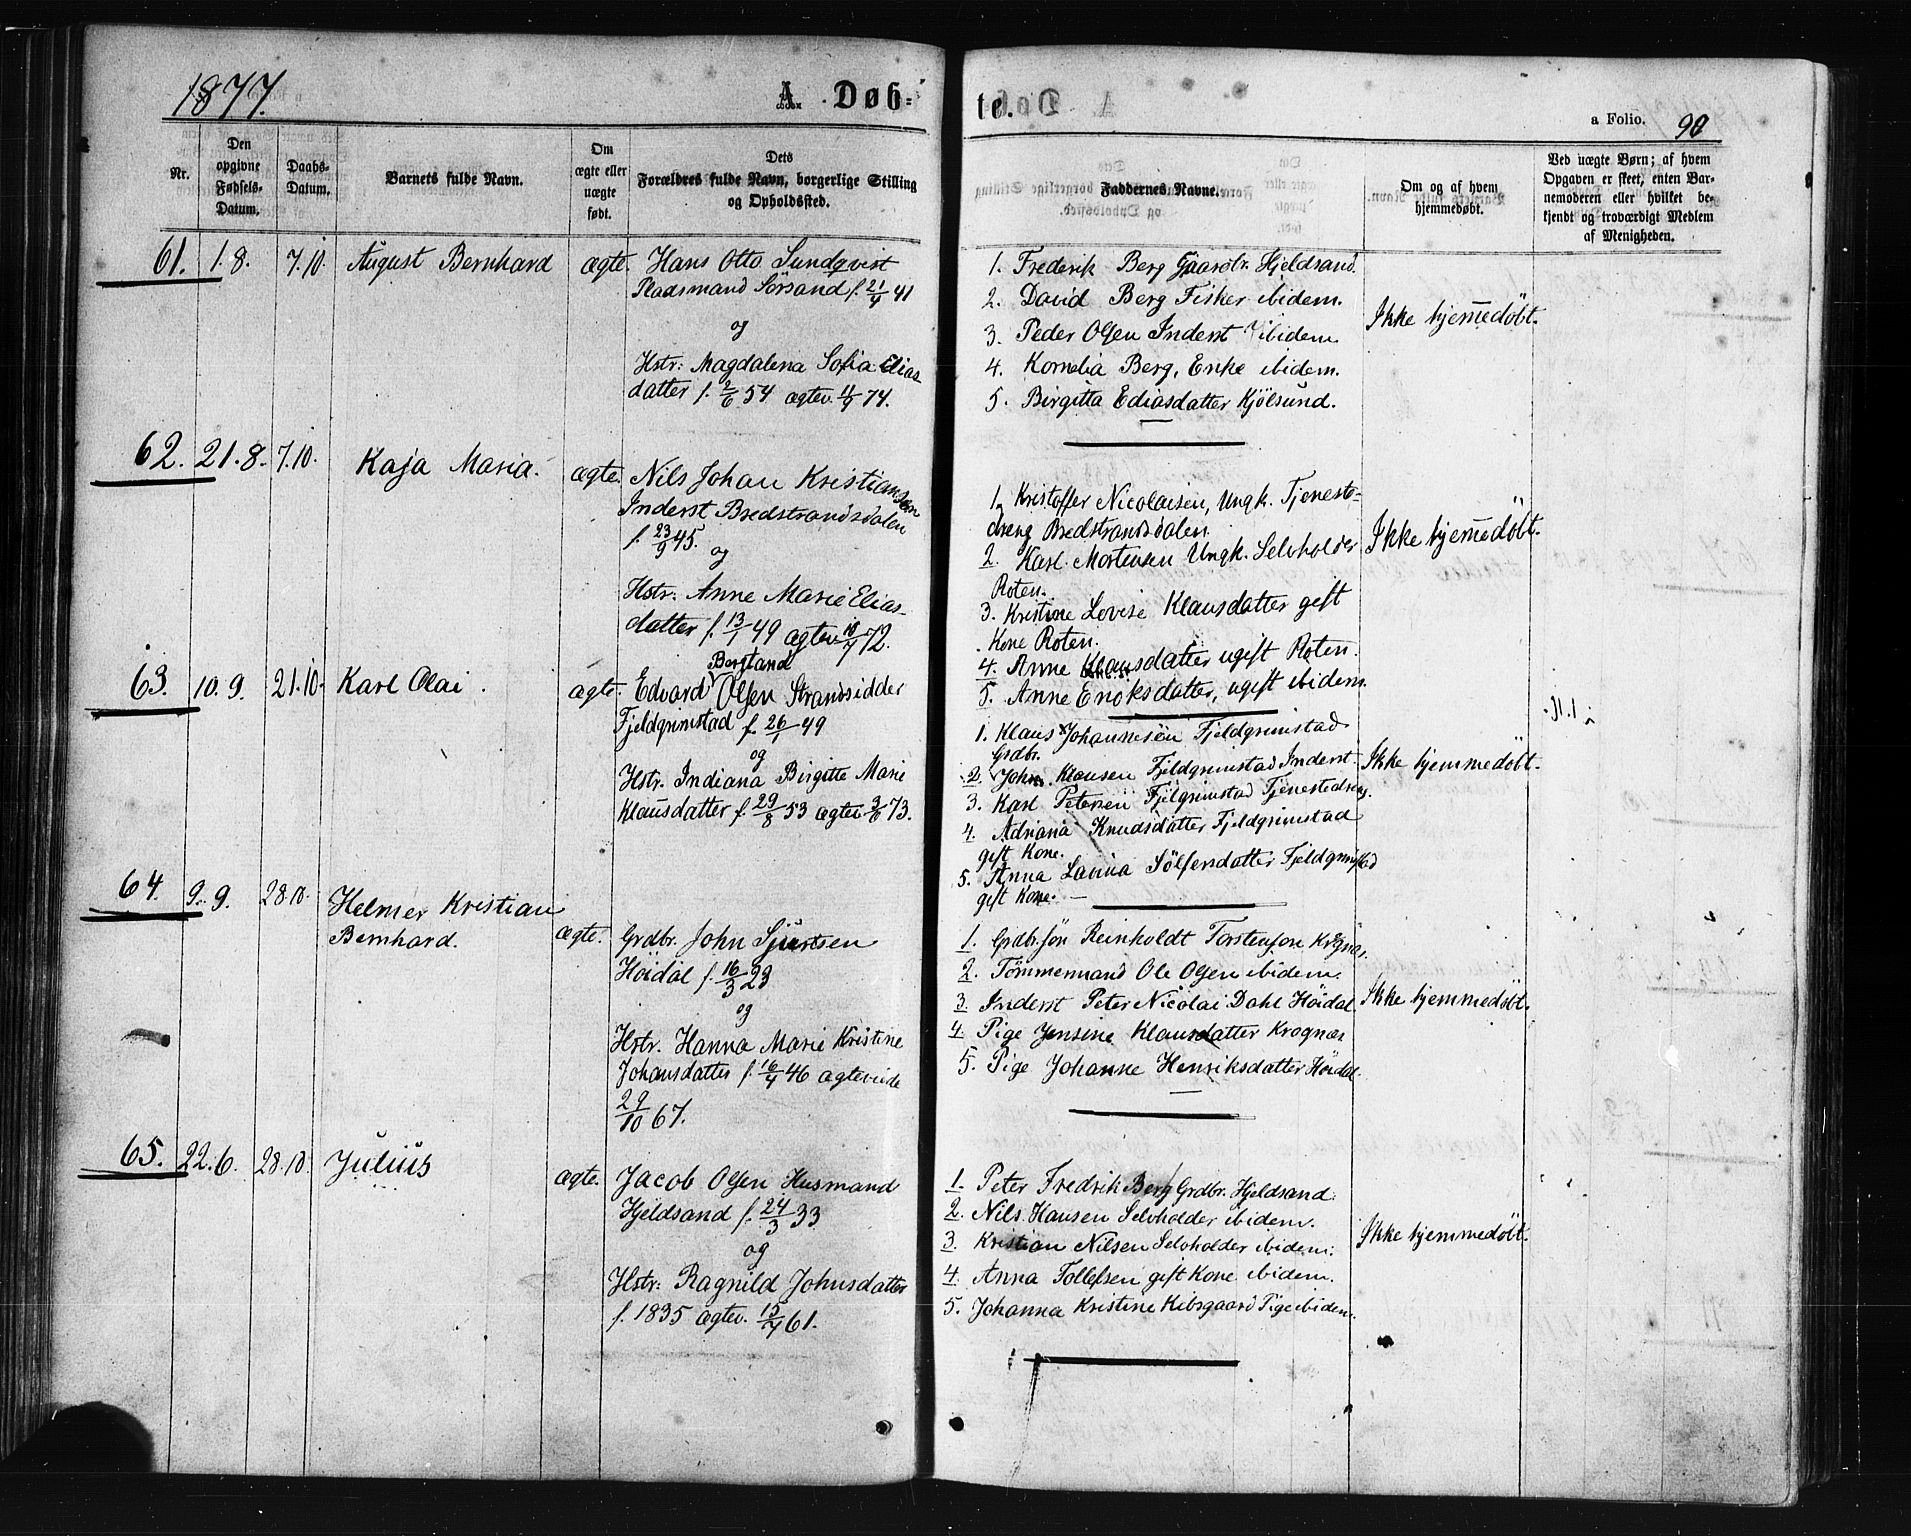 1877.
A. Døb-
te.
a Folio. 90
Nr.
Den opgivne Fødsels-Datum.
Daabs-Datum.
Barnets fulde Navn.
Om ægte eller uægte født.
Dets Forældres fulde Navn, borgerlige Stilling og Opholdssted.
Faddernes Navne.
Om og af hvem hjemmedøbt.
Ved uægte Børn; af hvem Opgaven er skeet, enten Barnemoderen eller hvilket bekjendt og troværdigt Medlem af Menigheden.
61. 1.8. 7.10. August Bernhard ægte. Hans Otto Sundqvist
Pladsmand Sørsand f. 21/4 41
og
Hstr: Magdalena Sofia Elias-
datter f. 2/6 54 ægtev. 11/9 74.
1. Frederik Berg Gaardbr. Hjeldsand.
2. David Berg Fisker ibidem.
3. Peder Olsen Inderst ibidem
4. Kornelia Berg, Enke ibidem.
5. Birgitta Ediasdatter Kjölsund.
Ikke hjemmedöbt.
62. 21.8. 7.10. Kaja Maria. ægte. Nils Johan Kristiansen
Inderst Bredstrandsdalen
f. 23/9 45.
og
Hstr: Anne Marie Elias-
datter f. 13/1 49 ægtev. 10/7 72.
1. Kristoffer Nicolaisen, Ungk. Tjeneste-
dreng Bredstrandsdalen.
2. Karl Mortensen Ungk. Selvholder
Roten.
3. Kristine Lovise Klausdatter gift
Kone Roten.
4. Anne Klausdatter ugift Roten.
5. Anne Enoksdatter, ugift ibidem.
Ikke hjemmedöbt.
63. 10.9. 21.10. Karl Olai. ægte. Edvard Bergland Olsen Strandsidder
Fjeldgrimstad f. 26/1 49
og
Hstr. Indiana Birgitte Marie
Klausdatter f. 29/8 53 ægtev. 3/6 73.
1. Klaus Johannesen Fjeldgrimstad
Grdbr.
2. John Klausen Fjeldgrimstad Inderst
3. Karl Petersen Fjelgrimstad Tjenestedreng.
4. Adriana Knudsdatter Fjeldgrimstad
gift Kone.
5. Anna Lavina Sölfersdatter Fjeldgrimstad
gift Kone.
Ikke hjemmedöbt.
64. 9.9. 28.10. Helmer Kristian
Bernhard.
ægte. Grdbr. John Sjursen
Höidal f. 16/3 23
og
Hstr. Hanna Marie Kristine
Johansdatter f. 16/4 46 ægteviede
29/10 67.
1. Grdbr.sön Reinholdt Torstensen Krognæs.
2. Tömmermand Ole Olsen ibidem.
3. Inderst Peter Nicolai Dahl Höidal
4. Pige Jensine Klausdatter Krognæs
5. Pige Johanne Henriksdatter Höidal.
Ikke hjemmedöbt.
65. 22.6. 28.10. Julius ægte. Jacob Olsen Husmand
Hjeldsand f. 24/3 33
og
Hstr: Ragnild Johnsdatter
f. 1835 ægtev. 15/7 61.
1. Peter Fredrik Berg Grdbr. Hjeldsand.
2. Nils Hansen Selvholder ibidem.
3. Kristian Nilsen Selvholder ibidem.
4. Anna Tollefsen gift Kone ibidem.
5. Johanna Kristine Kibsgaard Pige ibidem.
Ikke hjemmedöbt.